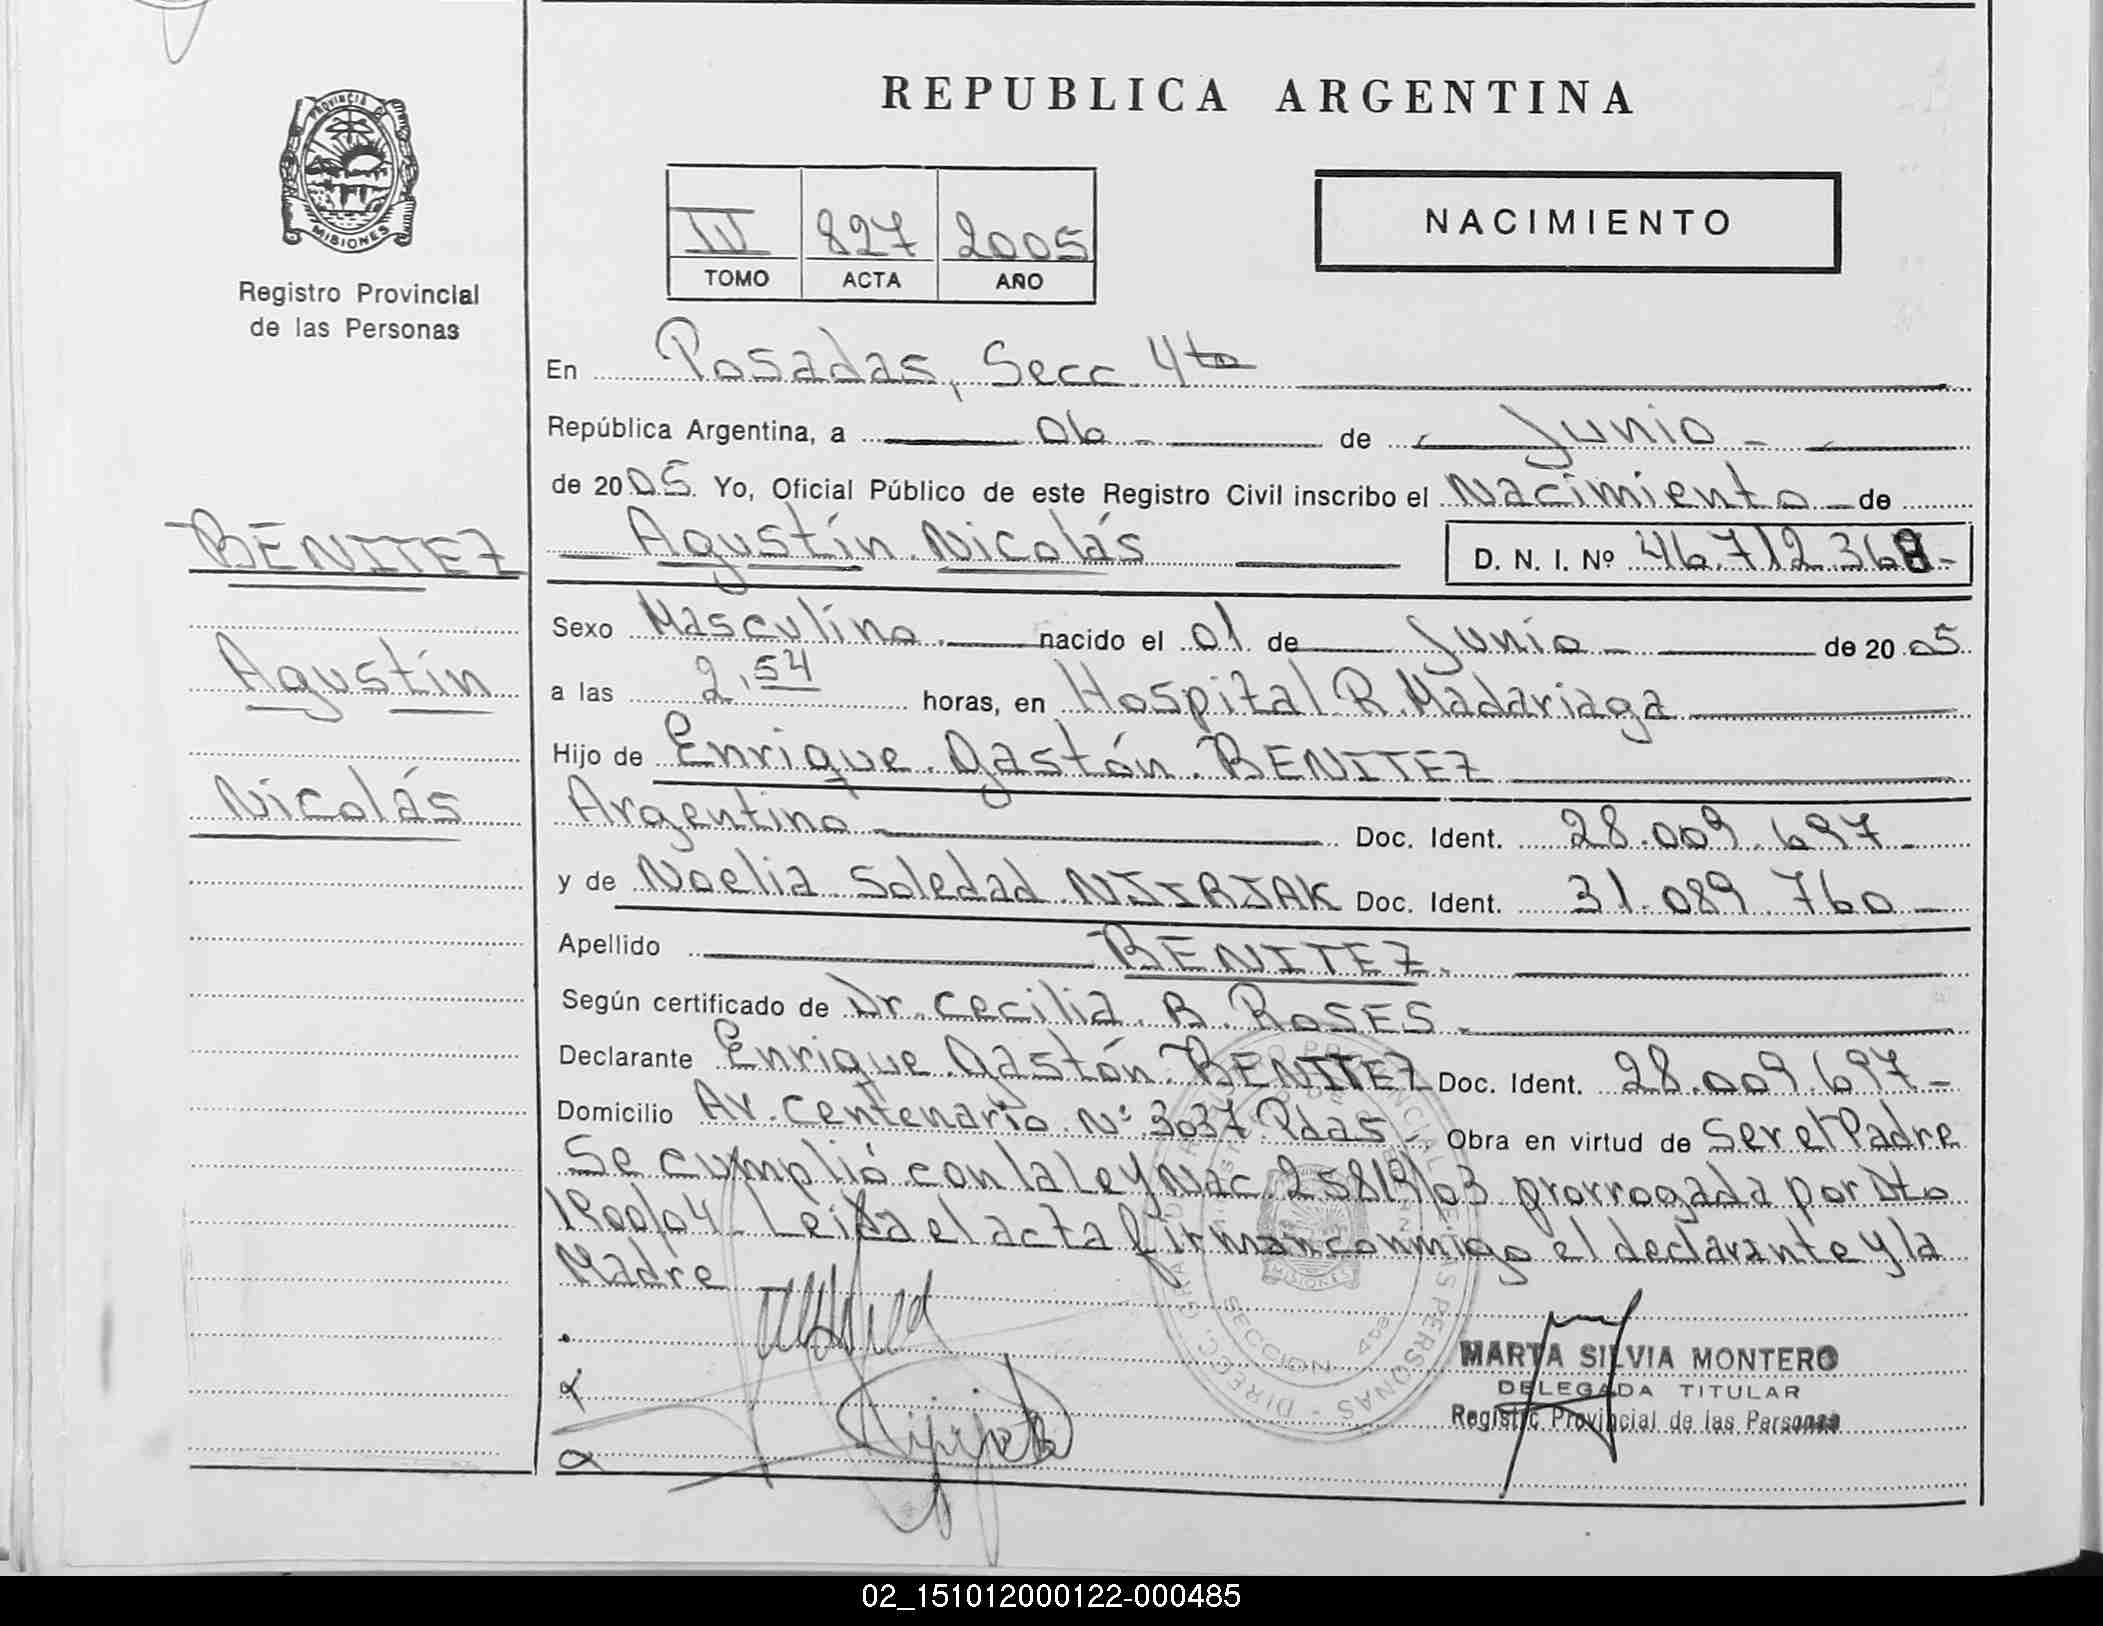 REPUBLICA ARGENTINA
PROVINCIA DE
MISIONES
Registro Provincial
de las Personas
827 2005
TOMO ACTA AÑO
NACIMIENTO
En Posadas, Secc 4ta
República Argentina, a 06 de Junio
de 2005. Yo, Oficial Público de este Registro Civil inscribo el Nacimiento de
Agustín Nicolás D. N. I. Nº
BENITEZ
Agustín
Nicolás
Sexo Masculino nacido el 01 de Junio de 2005
a las 2,54 horas, en Hospital R. Madariaga
Hijo de Enrique Gastón BENITEZ
Argentino Doc. Ident. 28.009.697
y de Noelia Soledad Doc. Ident. 31.089.760
Apellido BENITEZ
Según certificado de Dr. Cecilia B. ROSES
Declarante Enrique Gastón BENITEZ Doc. Ident. 28.009.697
Domicilio Av. Centenario Nº 3037 Pdas Obra en virtud de Ser el Padre
Se cumplió con la Ley Nac. 25819/03 prorrogada por Dto
1900/04 Leída el acta firman conmigo el declarante y la
Madre
SECCION 4ta
MARTA SILVIA MONTERO
DELEGADA TITULAR
Registro Provincial de las Personas
02_151012000122-000485